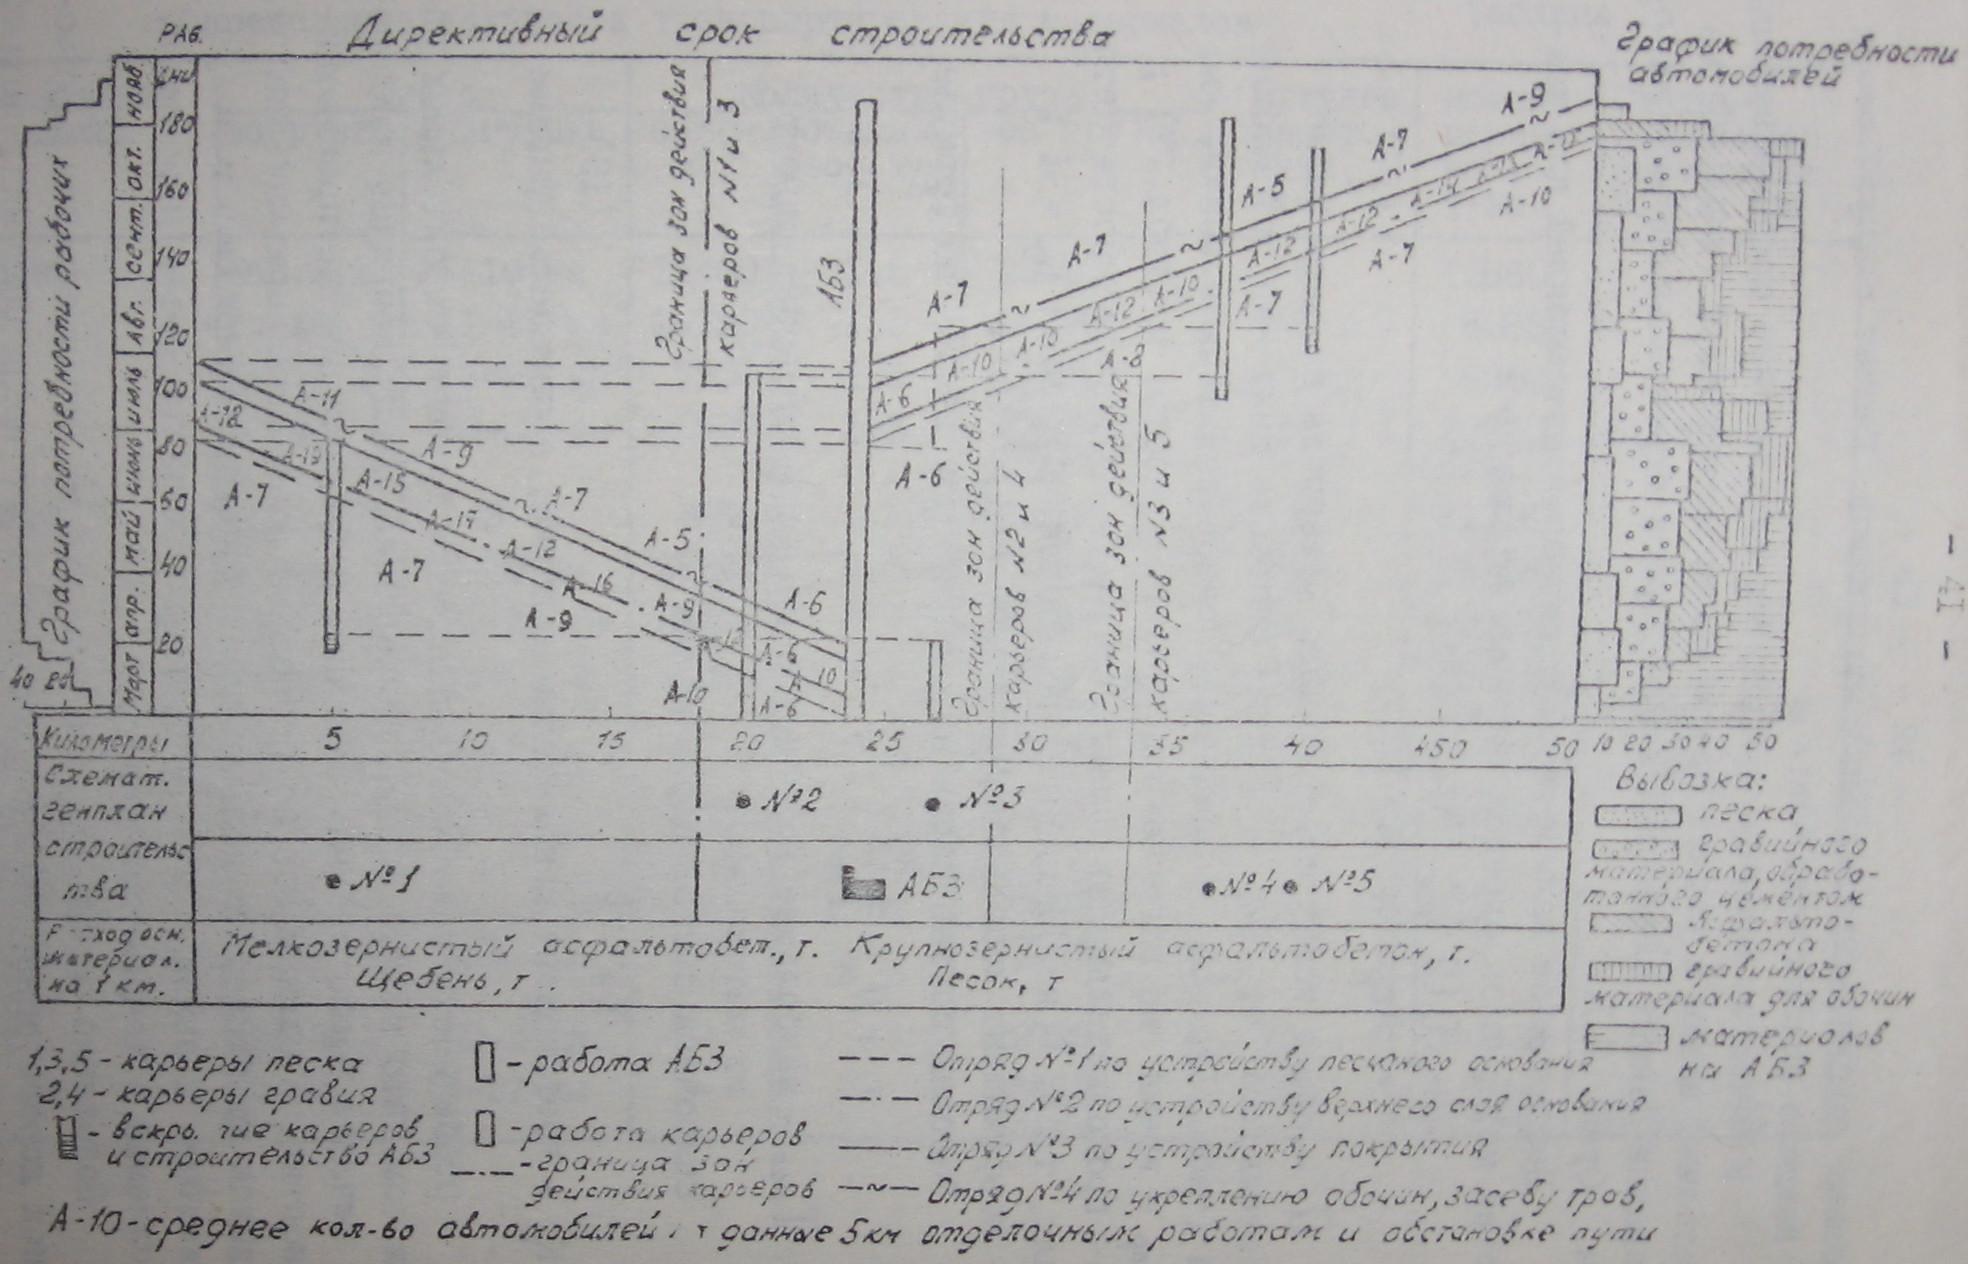 РАБ.
Директивный срок строительства
График потребности
автомобилей
График потребности рабочих
40 20
нояб
окт.
сент.
авг.
июль
июнь
май
апр.
Март
180
160
140
120
100
80
60
40
20
Граница зон действия
карьеров №1 и 3
АБЗ
Граница зон действия
карьеров №2 и 4
Граница зон действия
карьеров №3 и 5
А-9
А-7
А-5
А-7
А-7
А-10
А-14
А-12
А-12
А-7
А-10
А-12
А-7
А-10
А-10
А-8
А-6
А-6
А-11
А-12
А-9
А-19
А-15
А-7
А-7
А-17
А-12
А-5
А-7
А-16
А-9
А-6
А-9
А-6
10
А-10
А-6
- 41 -
Километры 5 10 15 20 25 30 35 40 450 50 10 20 30 40 50
Схемат.
генплан
строительс
тва
№2 №3
№1 АБЗ №4 №5
Расход осн.
материал.
на 1 км.
Мелкозернистый асфальтобет., т. Крупнозернистый асфальтобетон, т.
Щебень, т. Песок, т
Вывозка:
песка
гравийного
материала, обрабо-
танного цементом
Асфальто-
бетона
гравийного
материала для обочин
материалов
на АБЗ
1,3,5 - карьеры песка
2,4 - карьеры гравия
- вскры. тие карьеров
и строительство АБЗ
- работа АБЗ
- работа карьеров
- граница зон
действия карьеров
Отряд №1 по устройству песчаного основания
Отряд №2 по устройству верхнего слоя основания
Отряд №3 по устройству покрытия
Отряд №4 по укреплению обочин, засеву трав,
А-10 - среднее кол-во автомобилей данные 5 км отделочным работам и обстановке пути